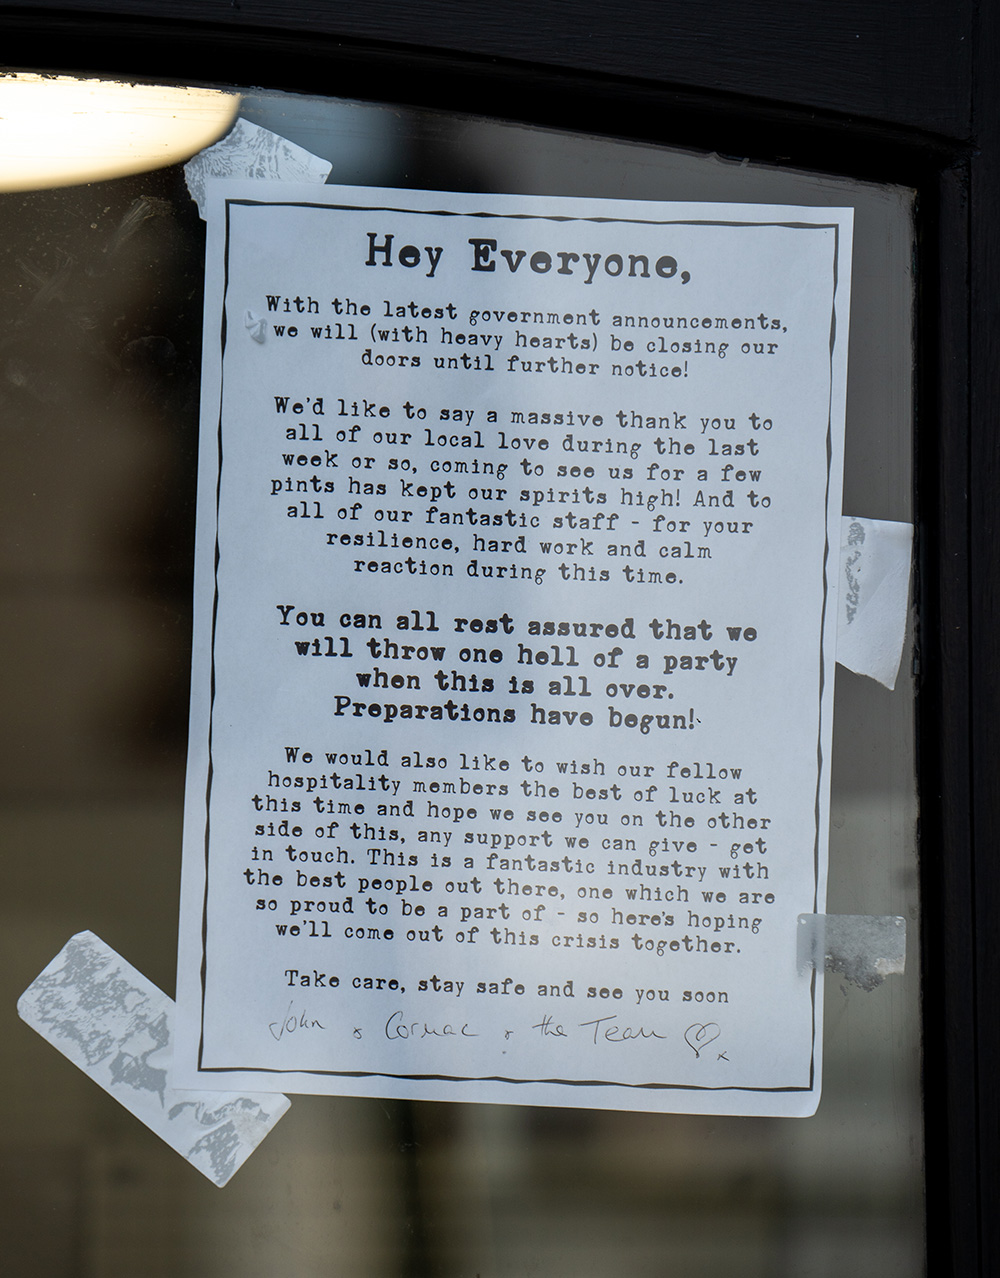 Hey Everyone,
With the latest government announcements,
we will (with heavy hearts) be closing our
doors until further notice!
We'd like to say a massive thank you to
all of our local love during the last
week or so, coming to see us for a few
pints has kept our spirits high! And to
all of our fantastic staff - for your
resilience, hard work and calm
reaction during this time.
You can all rest assured that we
will throw one hell of a party
when this is all over.
Preparations have begun!
We would also like to wish our fellow
hospitality members the best of luck at
this time and hope we see you on the other
side of this, any support we can give - get
in touch. This is a fantastic industry with
the best people out there, one which we are
so proud to be a part of - so here's hoping
we'll come out of this crisis together.
Take care, stay safe and see you soon
John & Cormac & the Team ♡x